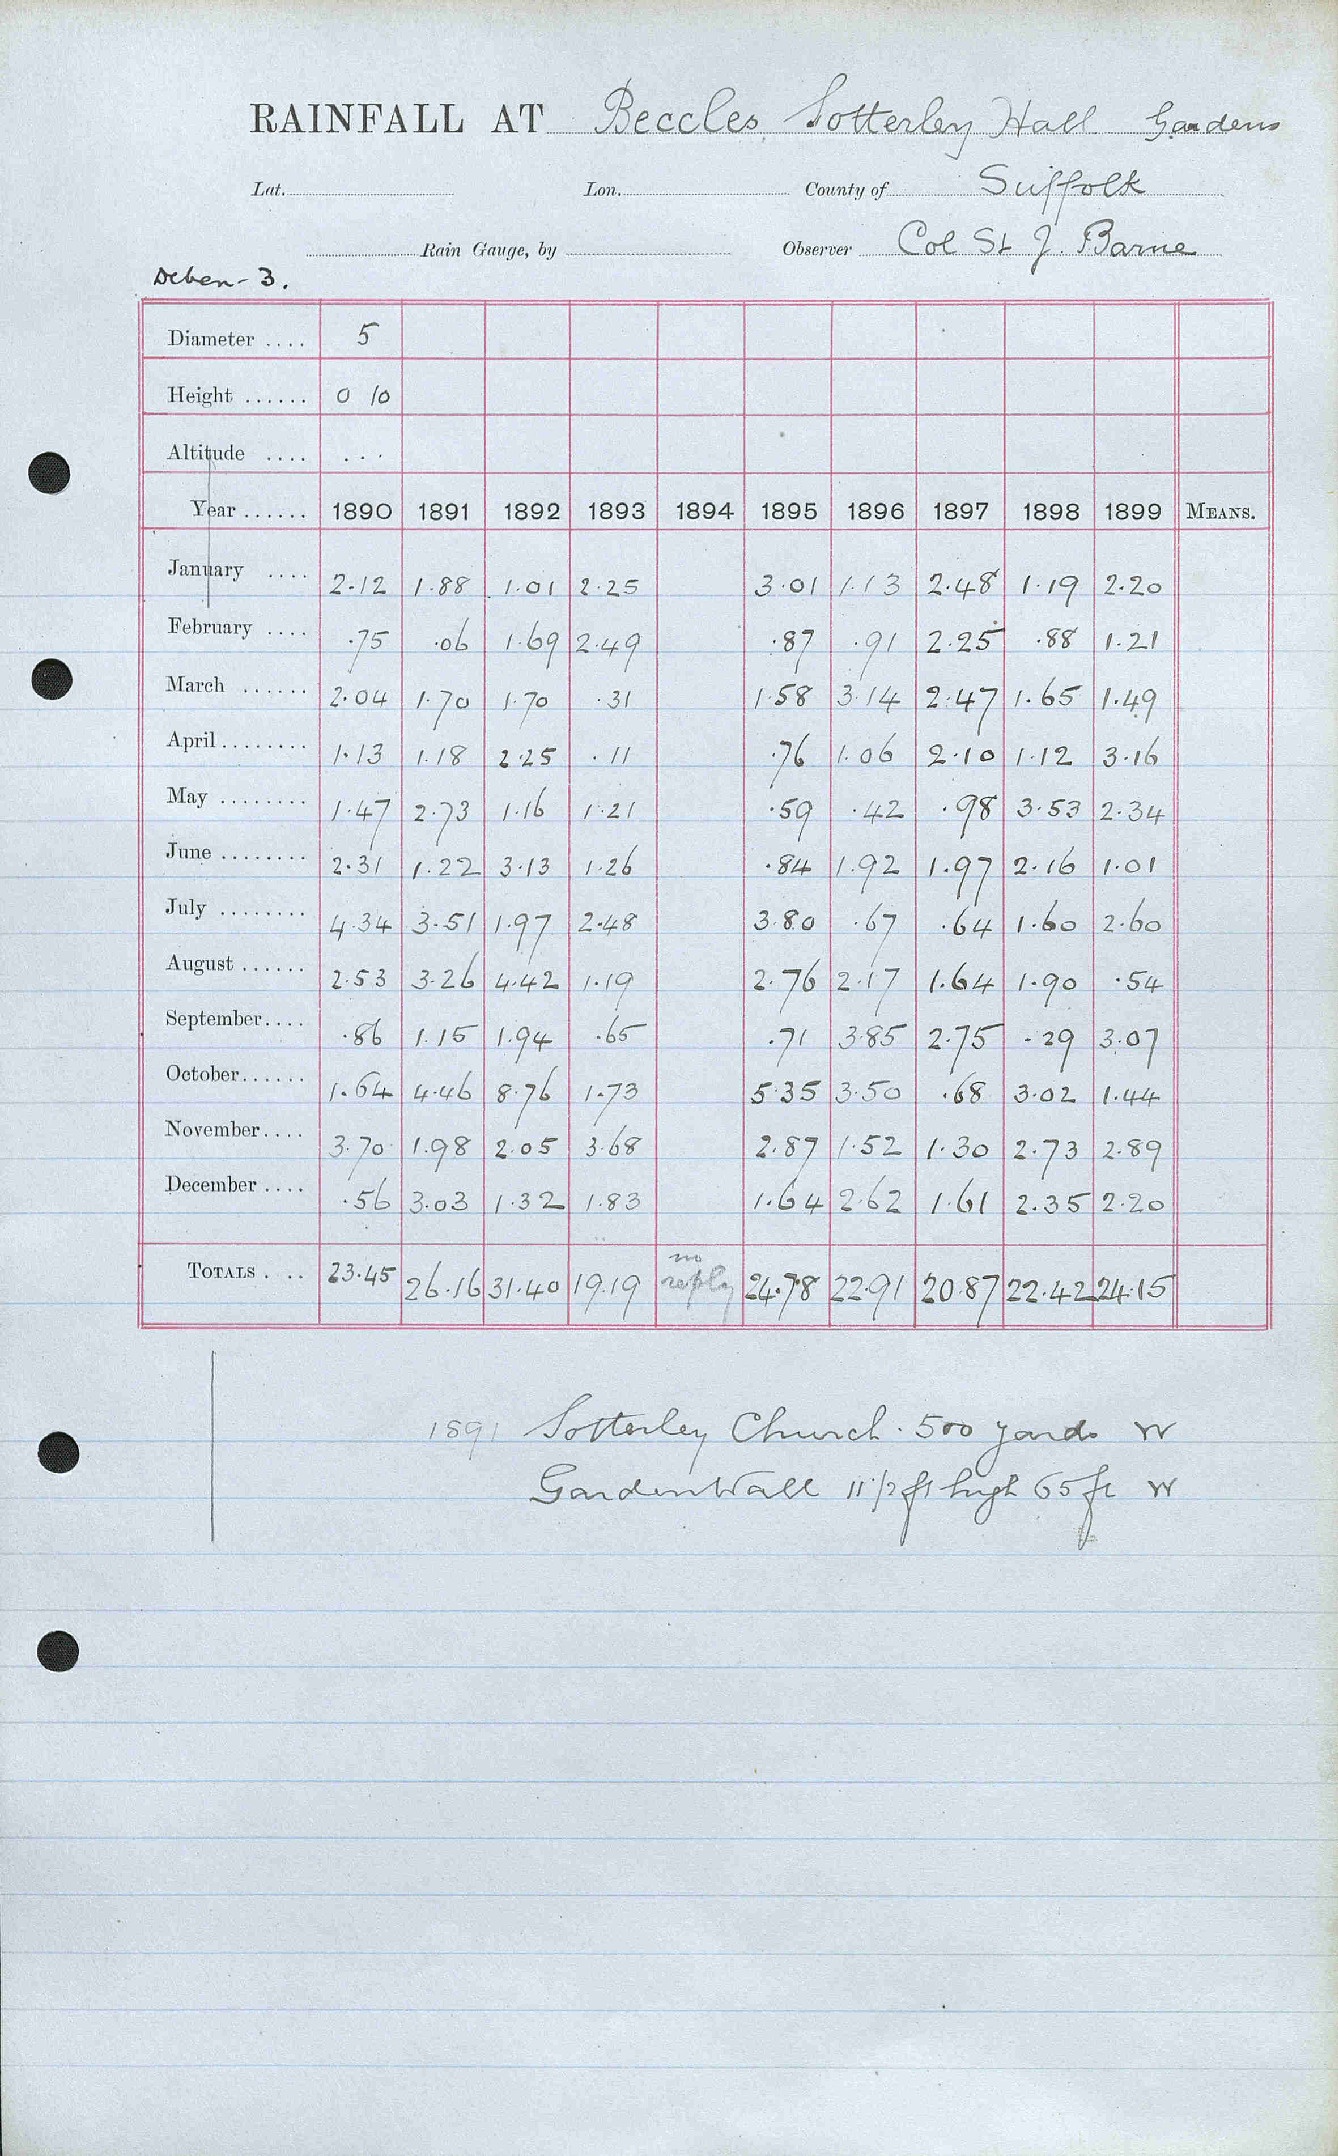 RAINFALL AT Beccles, Sotterley Hall Gardens
Lat. Lon. County of Suffolk
Rain Gauge, by Observer Col St J. Barne
Deben-3.
Diameter .... 5
Height ...... 0 10
Altitude .... ...
Year ...... 1890 1891 1892 1893 1894 1895 1896 1897 1898 1899 MEANS.
January .... 2.12 1.88 1.01 2.25 3.01 1.13 2.48 1.19 2.20
February .... .75 .06 1.69 2.49 .87 .91 2.25 .88 1.21
March ...... 2.04 1.70 1.70 .31 1.58 3.14 2.47 1.65 1.49
April ........ 1.13 1.18 2.25 .11 .76 1.06 2.10 1.12 3.16
May ........ 1.47 2.73 1.16 1.21 .59 .42 .98 3.53 2.34
June ........ 2.31 1.22 3.13 1.26 .84 1.92 1.97 2.16 1.01
July ........ 4.34 3.51 1.97 2.48 3.80 .67 .64 1.60 2.60
August ...... 2.53 3.26 4.42 1.19 2.76 2.17 1.64 1.90 .54
September.... .86 1.15 1.94 .65 .71 3.85 2.75 .29 3.07
October...... 1.64 4.46 8.76 1.73 5.35 3.50 .68 3.02 1.44
November.... 3.70 1.98 2.05 3.68 2.87 1.52 1.30 2.73 2.89
December .... .56 3.03 1.32 1.83 1.64 2.62 1.61 2.35 2.20
TOTALS . .. 23.45 26.16 31.40 19.19 no reply 24.78 22.91 20.87 22.42 24.15
1891 Sotterley Church. 500 yards W
Garden Wall 11 1/2 ft high 65 ft W